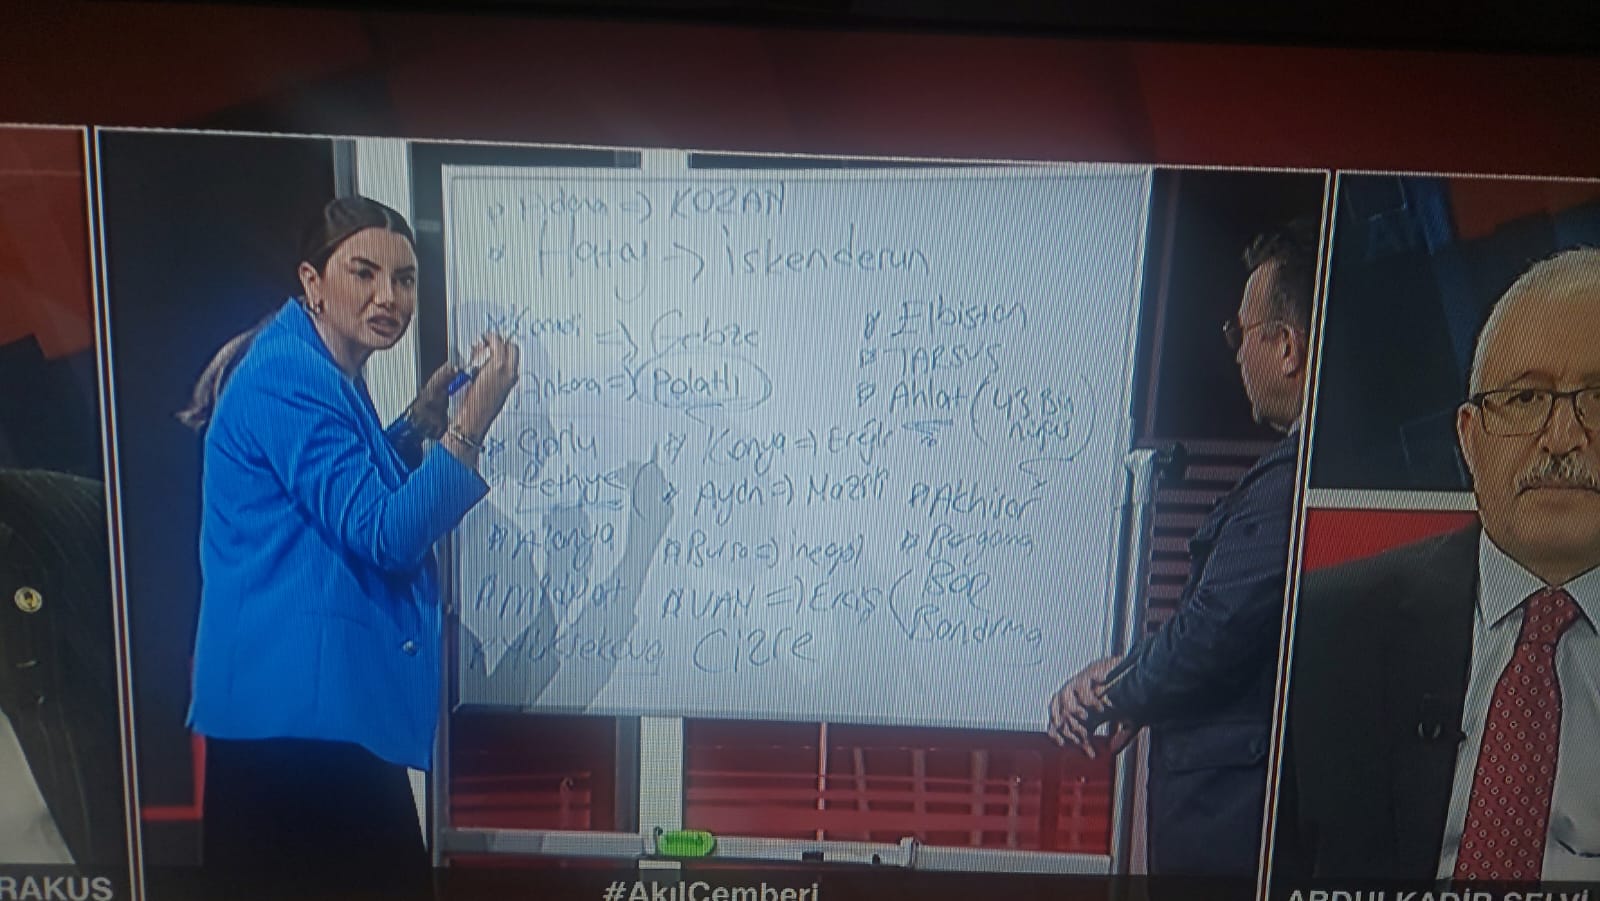 Adana => KOZAN
Hatay -> İskenderun
=> Gebze
Elbistan
Ankara => Polatlı
TARSUS
Ahlat (43 Bin nüfus)
Çorlu
Konya => Ereğli
Fethiye
Aydın => Nazilli
Akhisar
Alanya
Bursa => İnegöl
Bergama
Midyat
VAN => Erciş
Bandırma
Yüksekova
Cizre
RAKUŞ
#AkılÇemberi
ABDULKADİR SELVİ